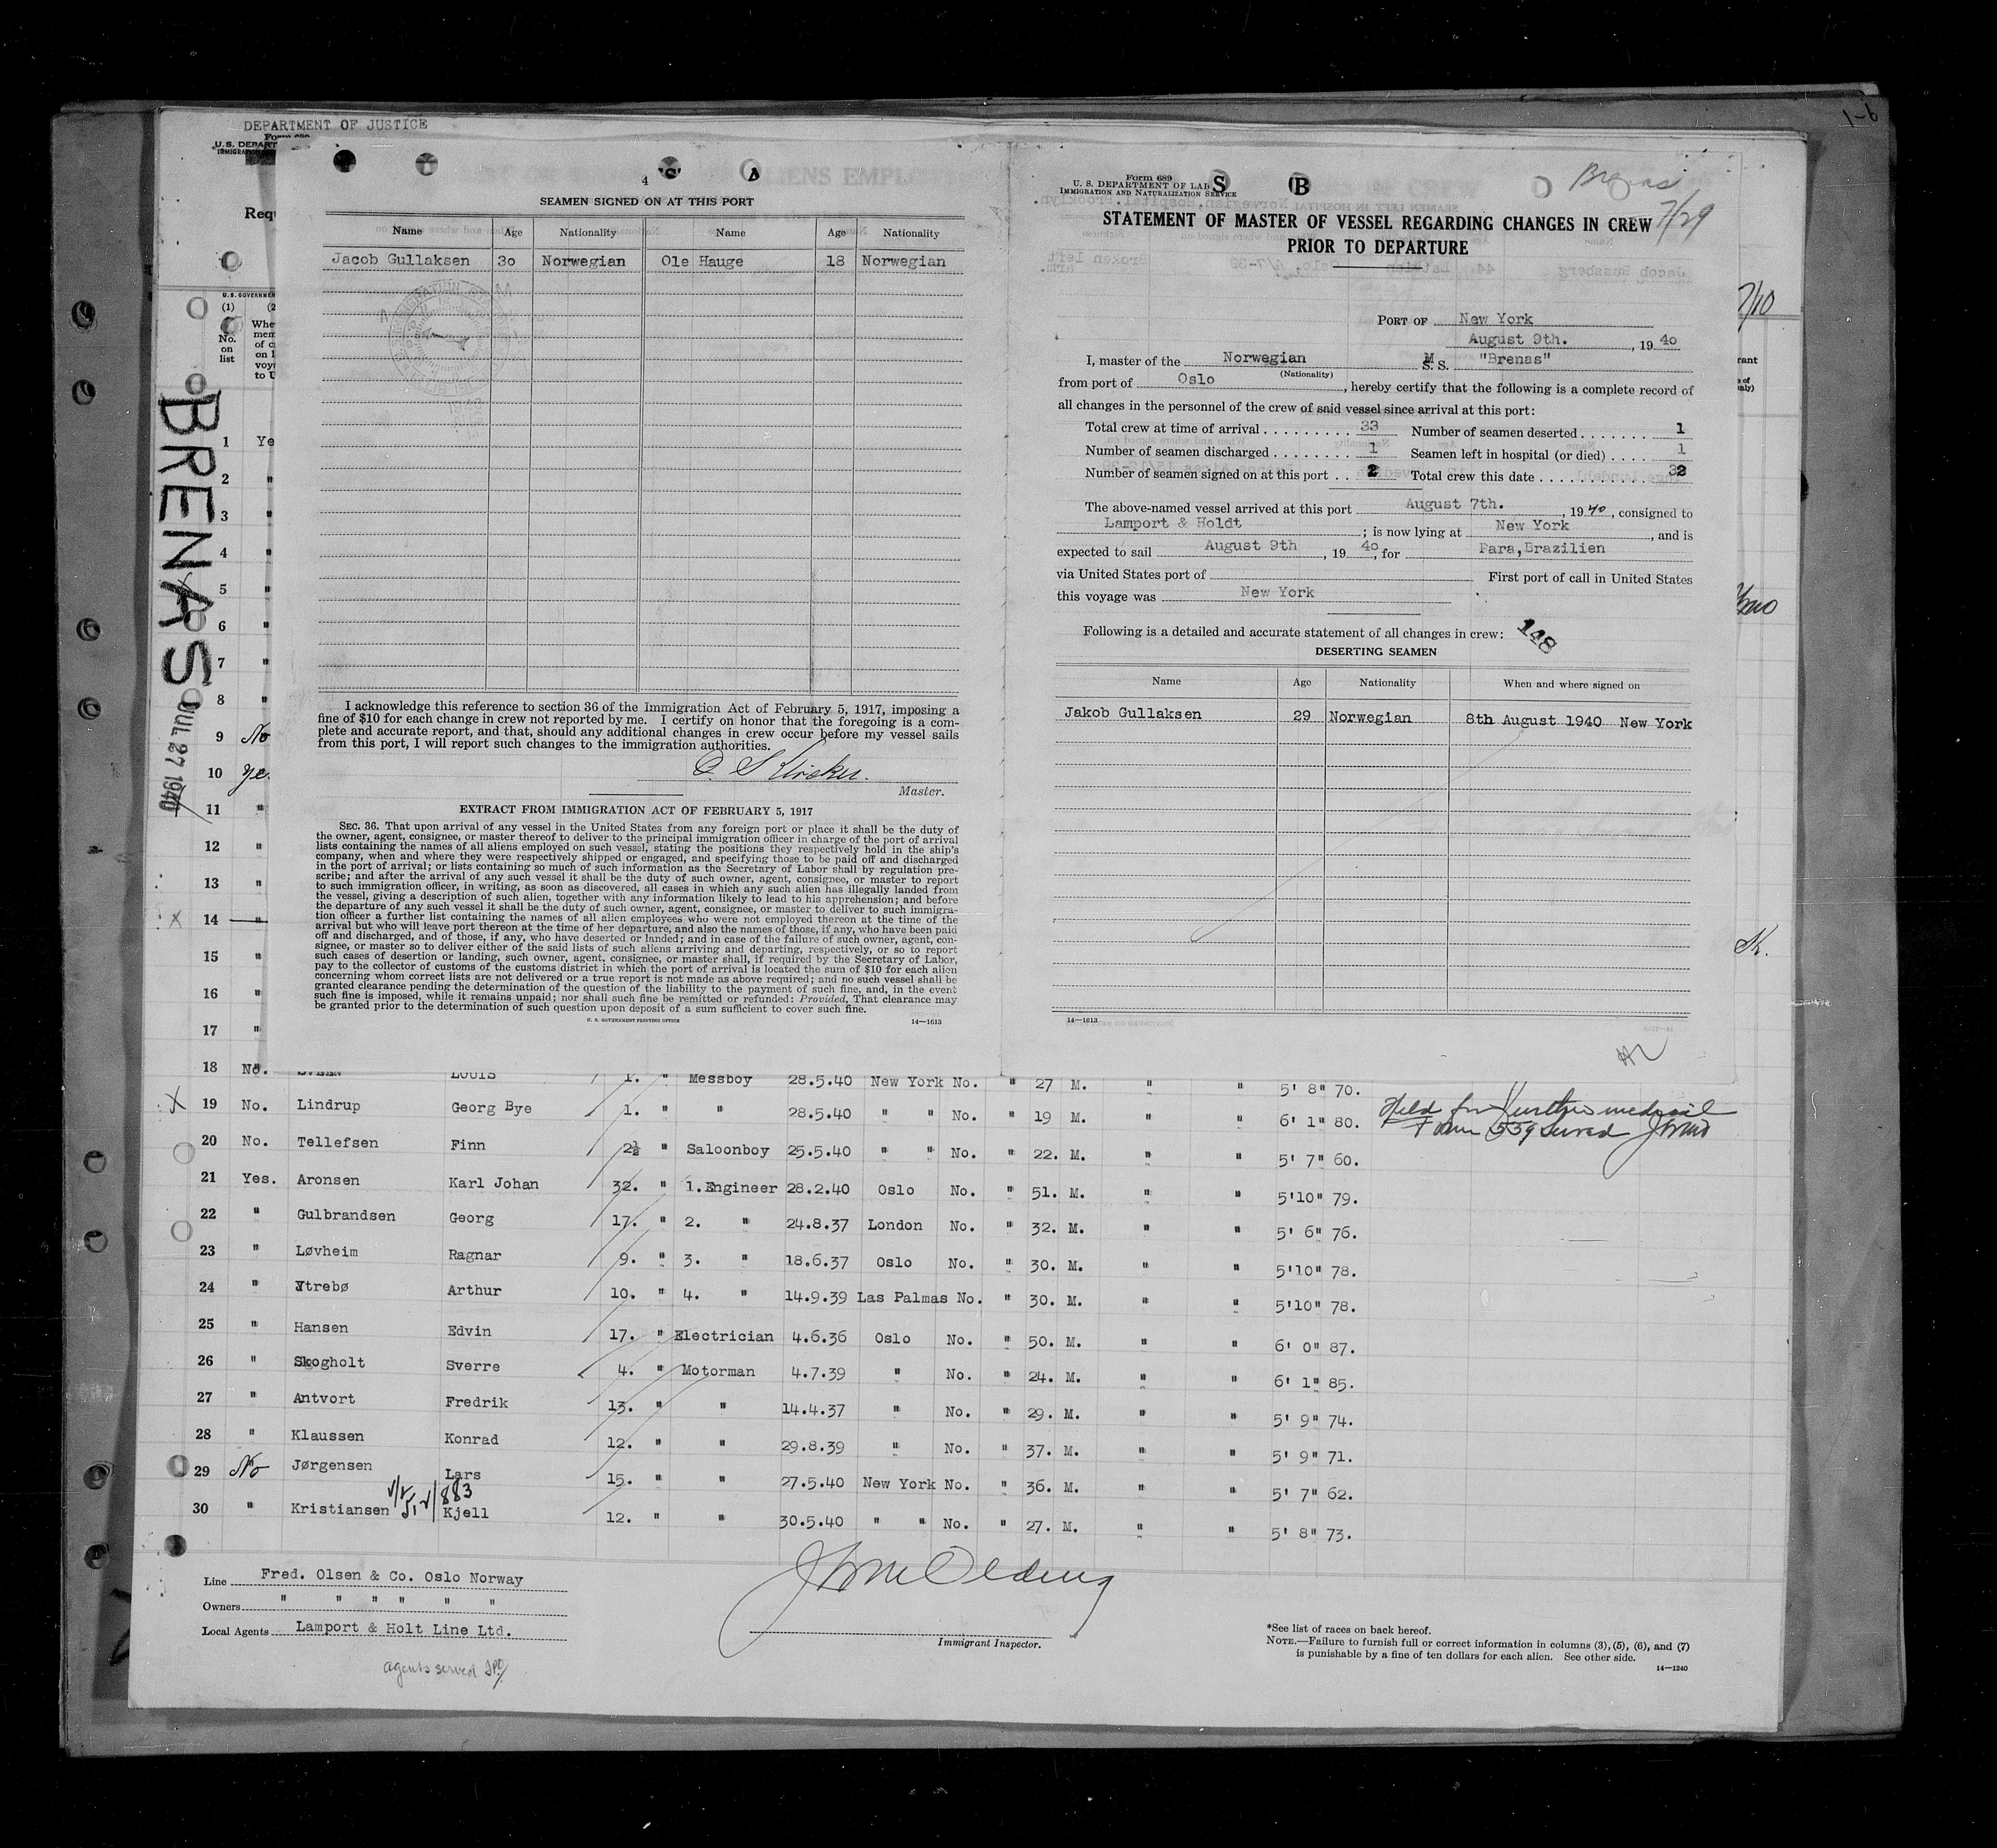 DEPARTMENT OF JUSTICE
1-6
BRENAS
JUL 27 1940
4
SEAMEN SIGNED ON AT THIS PORT
Name Age Nationality Name Age Nationality
Jacob Gullaksen 30 Norwegian Ole Hauge 18 Norwegian
I acknowledge this reference to section 36 of the Immigration Act of February 5, 1917, imposing a
fine of $10 for each change in crew not reported by me. I certify on honor that the foregoing is a com-
plete and accurate report, and that, should any additional changes in crew occur before my vessel sails
from this port, I will report such changes to the immigration authorities.
Master.
EXTRACT FROM IMMIGRATION ACT OF FEBRUARY 5, 1917
SEC. 36. That upon arrival of any vessel in the United States from any foreign port or place it shall be the duty of
the owner, agent, consignee, or master thereof to deliver to the principal immigration officer in charge of the port of arrival
lists containing the names of all aliens employed on such vessel, stating the positions they respectively hold in the ship's
company, when and where they were respectively shipped or engaged, and specifying those to be paid off and discharged
in the port of arrival; or lists containing so much of such information as the Secretary of Labor shall by regulation pre-
scribe; and after the arrival of any such vessel it shall be the duty of such owner, agent, consignee, or master to report
to such immigration officer, in writing, as soon as discovered, all cases in which any such alien has illegally landed from
the vessel, giving a description of such alien, together with any information likely to lead to his apprehension; and before
the departure of any such vessel it shall be the duty of such owner, agent, consignee, or master to deliver to such immigra-
tion officer a further list containing the names of all alien employees who were not employed thereon at the time of the
arrival but who will leave port thereon at the time of her departure, and also the names of those, if any, who have been paid
off and discharged, and of those, if any, who have deserted or landed; and in case of the failure of such owner, agent, con-
signee, or master so to deliver either of the said lists of such aliens arriving and departing, respectively, or so to report
such cases of desertion or landing, such owner, agent, consignee, or master shall, if required by the Secretary of Labor,
pay to the collector of customs of the customs district in which the port of arrival is located the sum of $10 for each alien
concerning whom correct lists are not delivered or a true report is not made as above required; and no such vessel shall be
granted clearance pending the determination of the question of the liability to the payment of such fine, and, in the event
such fine is imposed, while it remains unpaid; nor shall such fine be remitted or refunded: Provided, That clearance may
be granted prior to the determination of such question upon deposit of a sum sufficient to cover such fine.
U. S. GOVERNMENT PRINTING OFFICE 14—1613
Form 689
U. S. DEPARTMENT OF LABOR
IMMIGRATION AND NATURALIZATION SERVICE
Brenas
7/29
STATEMENT OF MASTER OF VESSEL REGARDING CHANGES IN CREW
PRIOR TO DEPARTURE
PORT OF New York
August 9th. , 19 40
I, master of the Norwegian M S. S. "Brenas"
(Nationality)
from port of Oslo , hereby certify that the following is a complete record of
all changes in the personnel of the crew of said vessel since arrival at this port:
Total crew at time of arrival 33 Number of seamen deserted 1
Number of seamen discharged 1 Seamen left in hospital (or died) 1
Number of seamen signed on at this port 2 Total crew this date 32
The above-named vessel arrived at this port August 7th. , 1940, consigned to
Lamport & Holdt ; is now lying at New York , and is
expected to sail August 9th , 19 40, for Para,Brazilien
via United States port of First port of call in United States
this voyage was New York
Following is a detailed and accurate statement of all changes in crew: 148
DESERTING SEAMEN
Name Age Nationality When and where signed on
Jakob Gullaksen 29 Norwegian 8th August 1940 New York
14—1613
18 No. LOUIS 1. " Messboy 28.5.40 New York No. " 27 M. " " 5' 8" 70.
19 No. Lindrup Georg Bye 1. " " 28.5.40 " " No. " 19 M. " " 6' 1" 80. Held for further medical
Form 559 served
20 No. Tellefsen Finn 2½ " Saloonboy 25.5.40 " " No. " 22. M. " " 5' 7" 60.
21 Yes. Aronsen Karl Johan 32. " 1.Engineer 28.2.40 Oslo No. " 51. M. " " 5'10" 79.
22 " Gulbrandsen Georg 17. " 2. " 24.8.37 London No. " 32. M. " " 5' 6" 76.
23 " Løvheim Ragnar 9. " 3. " 18.6.37 Oslo No. " 30. M. " " 5'10" 78.
24 " Ytrebø Arthur 10. " 4. " 14.9.39 Las Palmas No. " 30. M. " " 5'10" 78.
25 " Hansen Edvin 17. " Electrician 4.6.36 Oslo No. " 50. M. " " 6' 0" 87.
26 " Skogholt Sverre 4. " Motorman 4.7.39 " No. " 24. M. " " 6' 1" 85.
27 " Antvort Fredrik 13. " " 14.4.37 " No. " 29. M. " " 5' 9" 74.
28 " Klaussen Konrad 12. " " 29.8.39 " No. " 37. M. " " 5' 9" 71.
29 No Jørgensen Lars 15. " " 27.5.40 New York No. " 36. M. " " 5' 7" 62.
30 " Kristiansen Kjell 12. " " 30.5.40 " " No. " 27. M. " " 5' 8" 73.
Line Fred. Olsen & Co. Oslo Norway
Owners " " " " " "
Local Agents Lamport & Holt Line Ltd.
agents served
Immigrant Inspector.
*See list of races on back hereof.
NOTE.—Failure to furnish full or correct information in columns (3), (5), (6), and (7)
is punishable by a fine of ten dollars for each alien. See other side.
14—1240